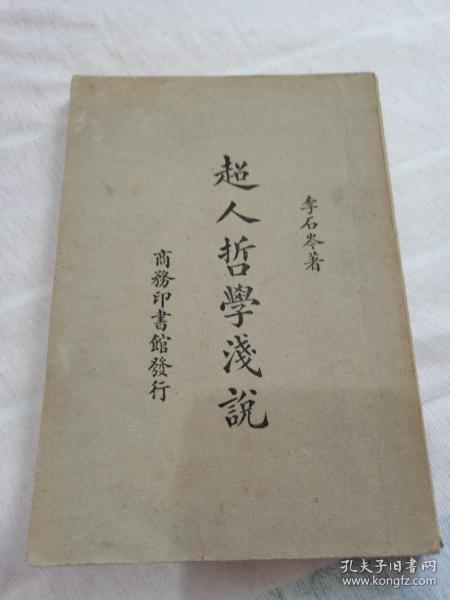 李石岑著
超人哲學淺說
商務印書館發行
孔夫子旧书网
www.kongfz.com